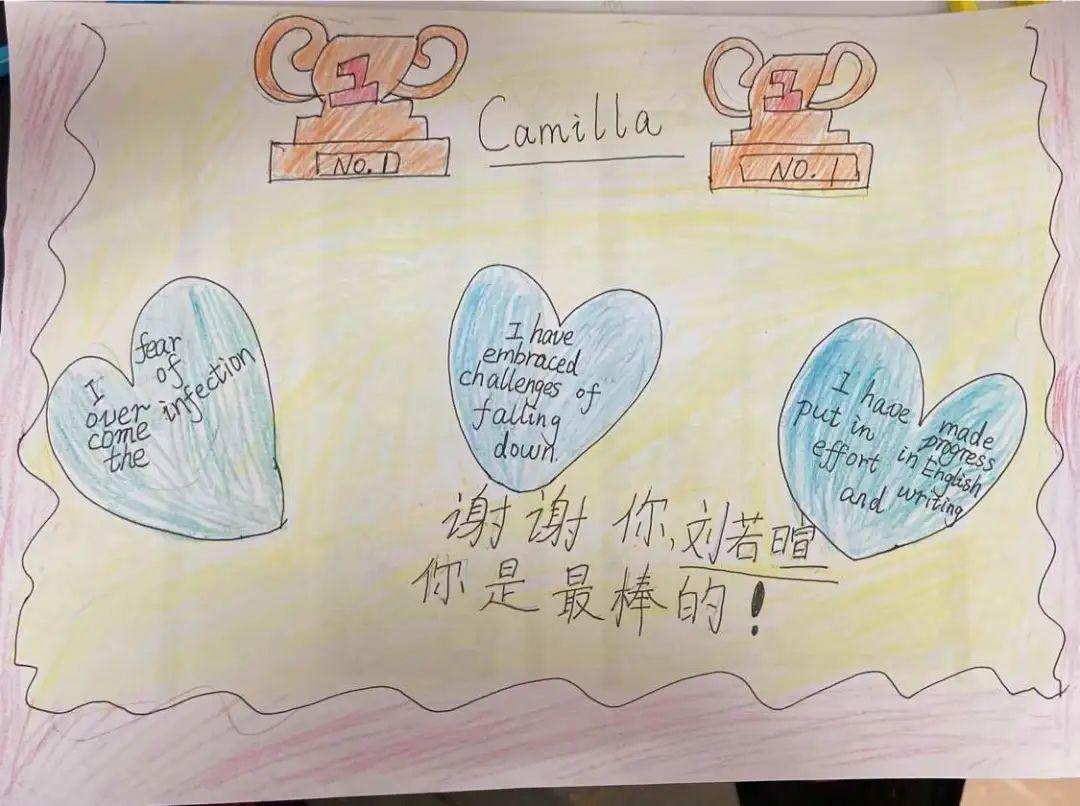 1
NO.1
Camilla
1
NO.1
I
over
come
the
fear
of
infection
I have
embraced
challenges of
falling
down.
I have
put in
effort
and
made
progress
in English
writing
谢谢你,刘若暄
你是最棒的!